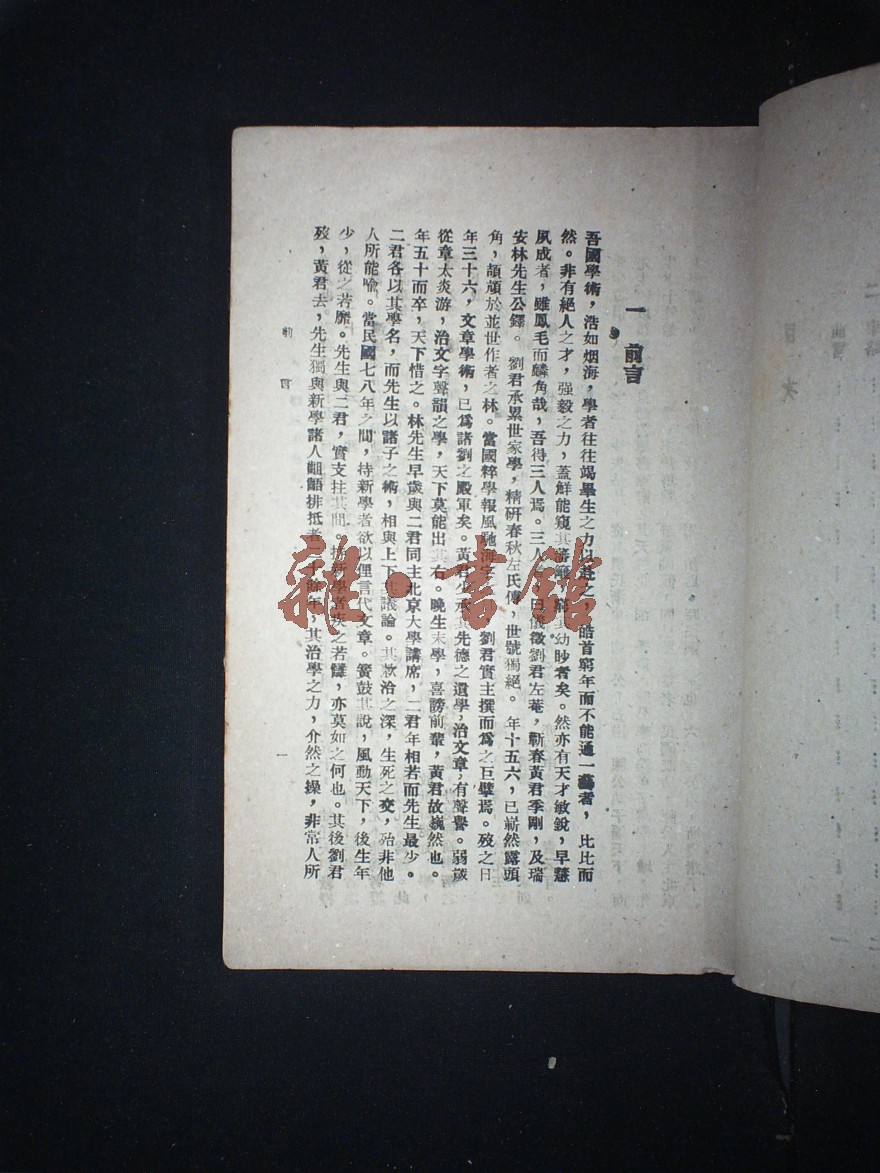 一 前言
吾國學術，浩如烟海，學者往往竭畢生之力以赴之，皓首窮年而不能通一藝者，比比而
然。非有絕人之才，強毅之力，蓋鮮能窺其幼眇者矣。然亦有天才敏銳，早慧
夙成者，雖鳳毛而麟角哉，吾得三人焉。三人曰儀徵劉君左菴，蘄春黃君季剛，及瑞
安林先生公鐸。劉君承累世家學，精研春秋左氏傳，世號獨絕。年十五六，已嶄然露頭
角，頡頏於並世作者之林。當國粹學報風馳海宇，劉君實主撰而爲之巨擘焉。歿之日
年三十六，文章學術，已爲諸劉之殿軍矣。黃君少承其先德之遺學，治文章，有聲譽。弱歲
從章太炎游，治文字聲韻之學，天下莫能出其右。晚生末學，喜謗前輩，黃君故巍然也。
年五十而卒，天下惜之。林先生早歲與二君同主北京大學講席，二君年相若而先生最少。
二君各以其學名，而先生以諸子之術，相與上下其議論。其款洽之深，生死之交，殆非他
人所能喻。當民國七八年之間，持新學者欲以俚言代文章。簧鼓其說，風動天下，後生年
少，從之若靡。先生與二君，實支拄其間，持新學者疾之若讎，亦莫如之何也。其後劉君
歿，黃君去，先生獨與新學諸人齟齬排抵者十餘年，其治學之力，介然之操，非常人所
前言
一
雜·書館
目次